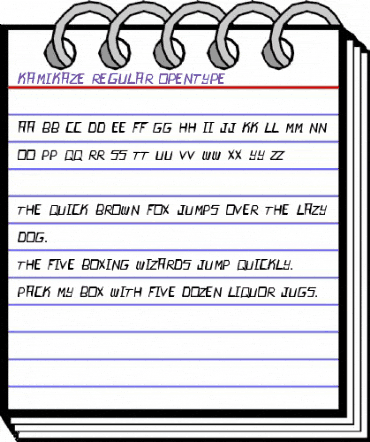 KAMIKAZE REGULAR OPENTYPE
AA BB CC DD EE FF GG HH II JJ KK LL MM NN
OO PP QQ RR SS TT UU VV WW XX YY ZZ
THE QUICK BROWN FOX JUMPS OVER THE LAZY
DOG.
THE FIVE BOXING WIZARDS JUMP QUICKLY.
PACK MY BOX WITH FIVE DOZEN LIQUOR JUGS.